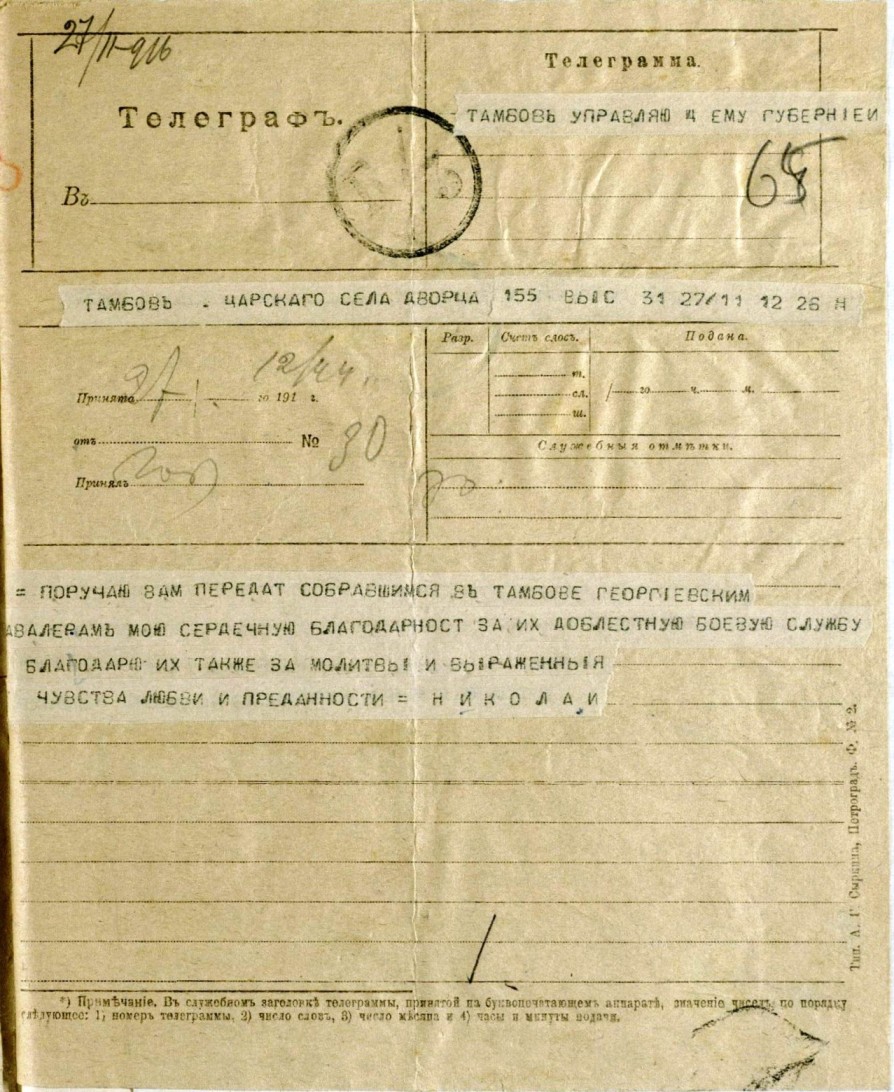 27/11-916
Телеграфъ.
Въ
Телеграмма.
- ТАМБОВЬ УПРАВЛЯЮ Ч ЕМУ ГУБЕРНІЕИ
ТАМБОВЬ - ЦАРСКАГО СЕЛА ДВОРЦА 155 ВЫС 31 27/11 12 26 Н
Принято 27 го 191 г.
12/44
отъ № 30
Принялъ
Разр. Счетъ словъ. Подана.
т.
сл.
ш.
го ч. м.
Служебныя отмѣтки.
= ПОРУЧАЮ ВАМ ПЕРЕДАТ СОБРАВШИМСЯ ВЬ ТАМБОВЕ ГЕОРГІЕВСКИМ
АВАЛЕРАМЬ МОЮ СЕРДЕЧНУЮ БЛАГОДАРНОСТ ЗА ИХ ДОБЛЕСТНУЮ БОЕВУЮ СЛУЖБУ
БЛАГОДАРЮ ИХ ТАКЖЕ ЗА МОЛИТВЫ И ВЫРАЖЕННЫЯ
ЧУВСТВА ЛЮБВИ И ПРЕДАННОСТИ = Н И К О Л А И
*) Примѣчаніе. Въ служебномъ заголовкѣ телеграммы, принятой на буквопечатающемъ аппаратѣ, значеніе чиселъ по порядку
слѣдующее: 1) номеръ телеграммы, 2) число словъ, 3) число мѣсяца и 4) часы и минуты подачи.
Тип. А. Г. Сыркина, Петроградъ. Ф. № 2.